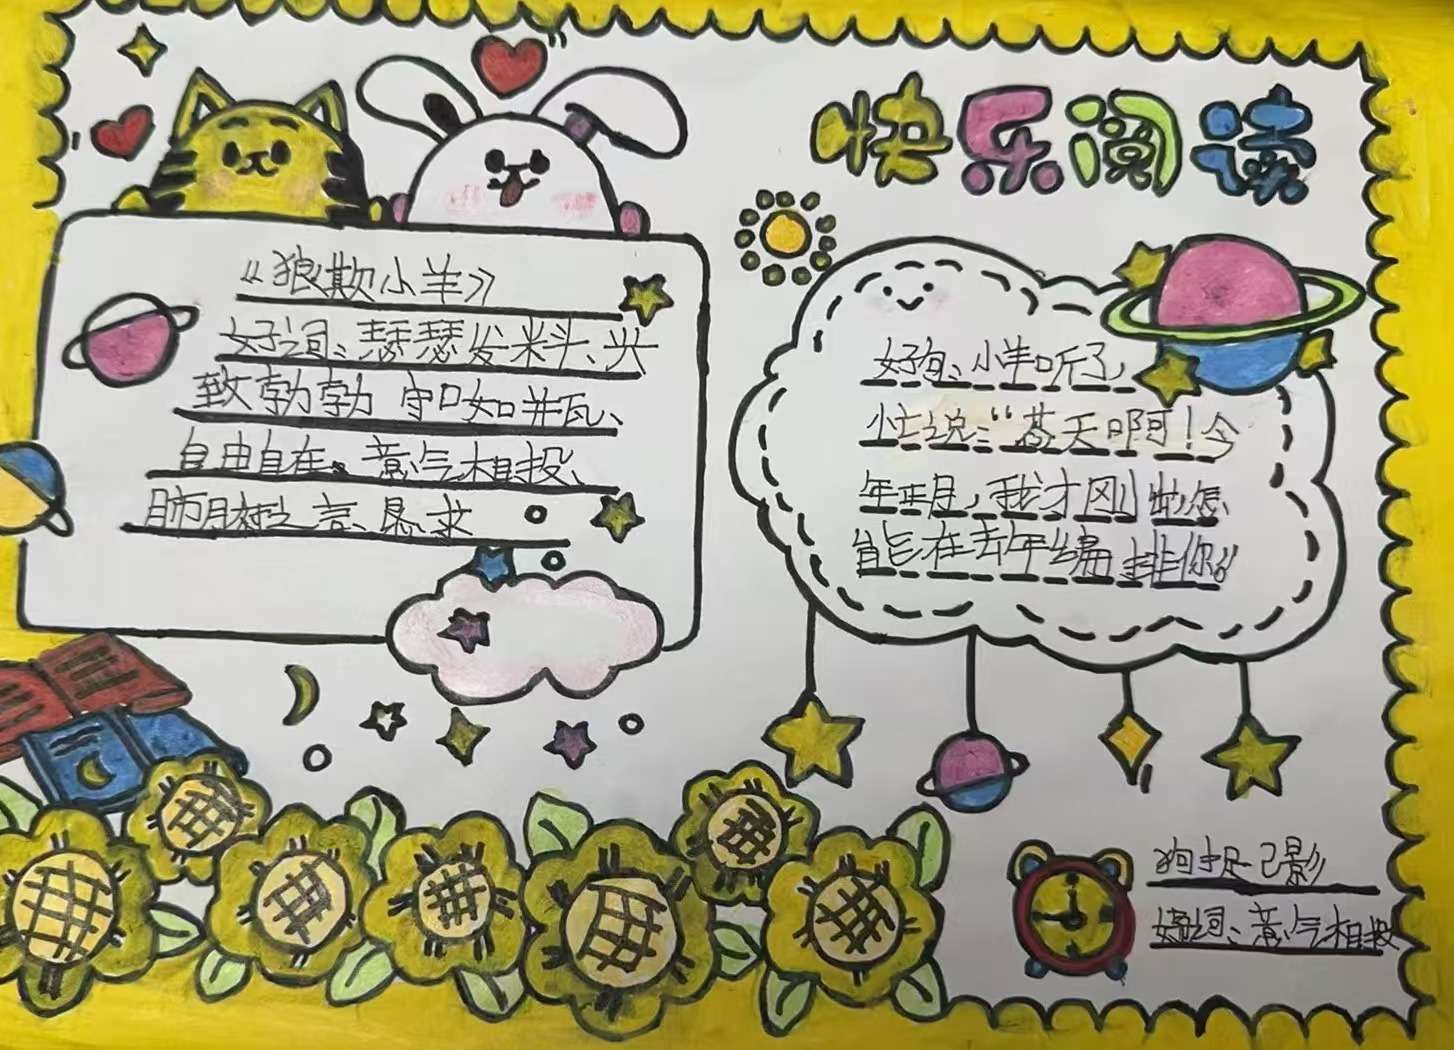 快乐阅读
《狼欺小羊》
好词：瑟瑟发抖、兴
致勃勃 守口如瓶、
自由自在、意气相投、
肺腑之言、恳求
好句：小羊听了，
忙说：“苍天啊！今
年正月，我才刚出，怎
能在去年编排你”
狗捉己影
好词：意气相投